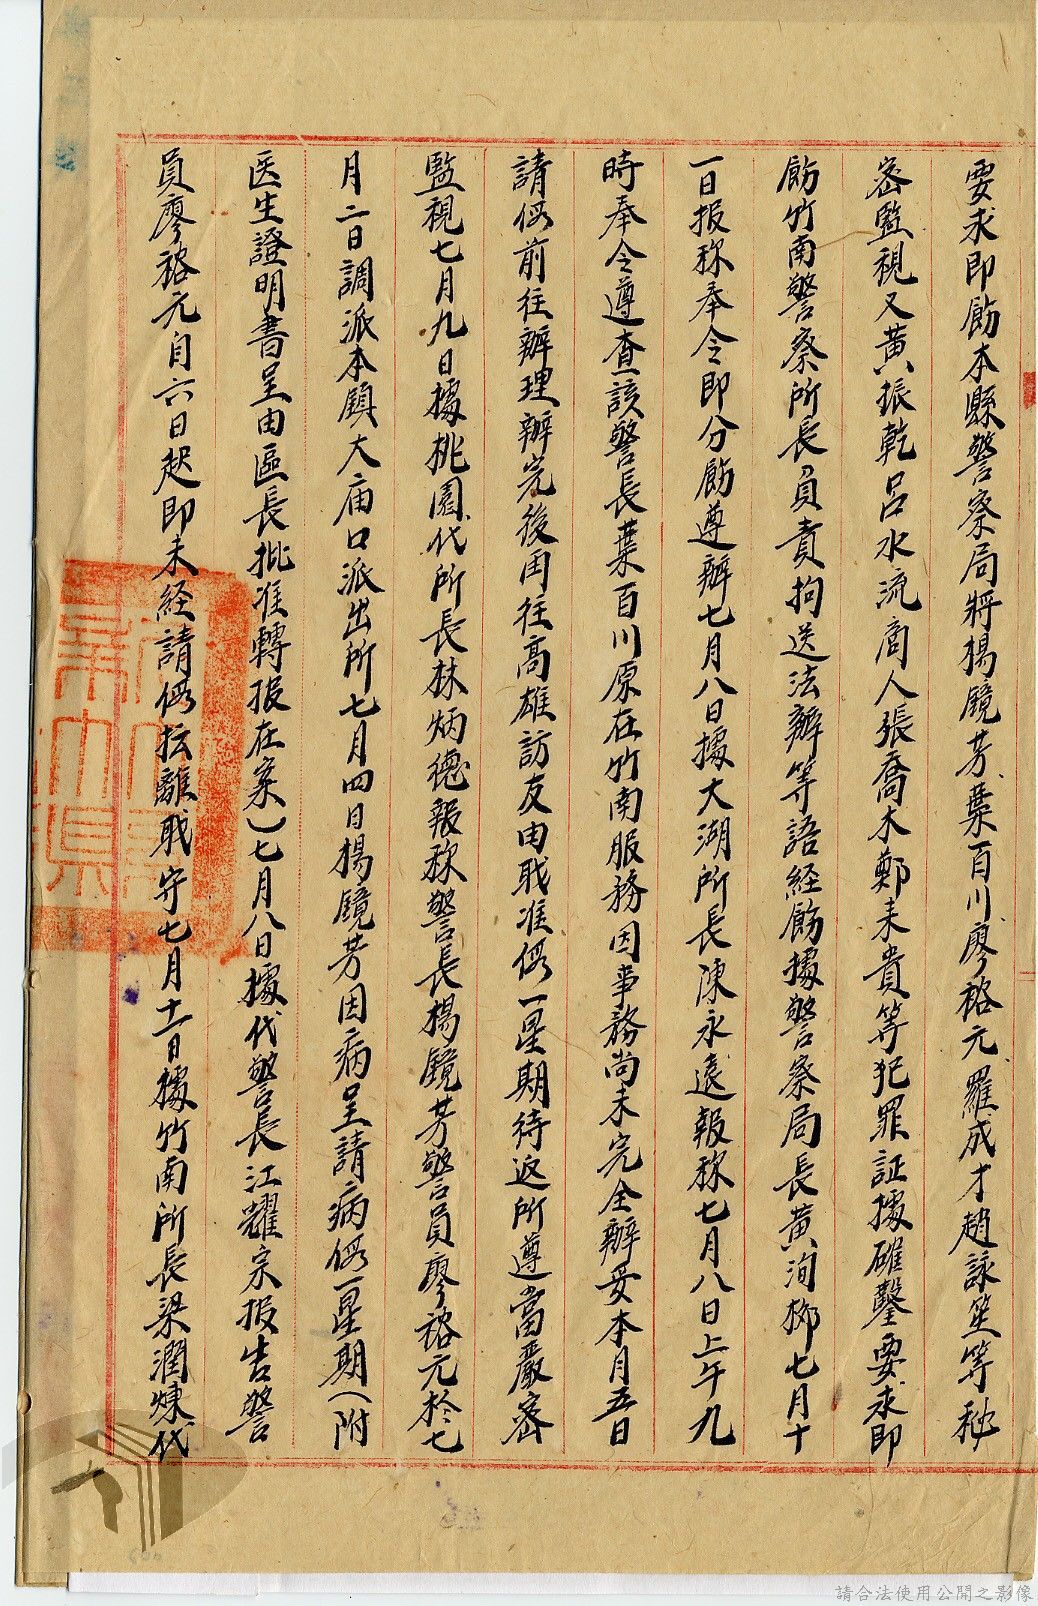 要求即飭本縣警察局將楊鏡芳、葉百川、廖裕元、羅成才、趙詠笙等秘
密監視又黃振乾呂水流商人張喬木鄭来貴等犯罪証據確鑿要求即
飭竹南警察所長負責拘送法辦等語経飭據警察局長黃洵椰七月十
一日报称奉令即分飭遵辦七月八日據大湖所長陳永遠報称七月八日上午九
時奉令遵查該警長葉百川原在竹南服務因事務尚未完全辦妥本月五日
請假前往辦理辦完後因往高雄訪友由职准假一星期待返所遵當嚴密
監視七月九日據桃園代所長林炳德報称警長楊鏡芳警員廖裕元於七
月二日調派本鎮大庙口派出所七月四日楊鏡芳因病呈請病假一星期(附
医生證明書呈由區長批准轉报在案)七月八日據代警長江耀宗报告警
員廖裕元自六日起即未経請假抎離职守七月十一日據竹南所長梁潤煉代
請合法使用公開之影像